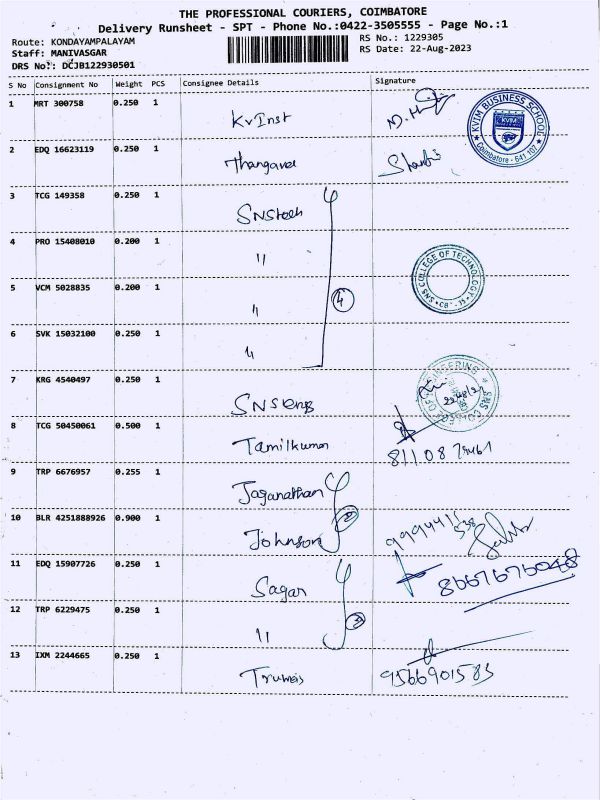 THE PROFESSIONAL COURIERS, COIMBATORE
Delivery Runsheet - SPT - Phone No.:0422-3505555 - Page No.:1
Route: KONDAYAMPALAYAM
Staff: MANIVASGAR
DRS No.: DCJB122930501
RS No.: 1229305
RS Date: 22-Aug-2023
S No Consignment No Weight PCS Consignee Details Signature
1 MRT 300758 0.250 1 KvInst
KVIM BUSINESS SCHOOL KVIM Coimbatore - 641 107
2 EDQ 16623119 0.250 1 Thangavel
3 TCG 149358 0.250 1 SNStech
4 PRO 15408010 0.200 1 "
SNS COLLEGE OF TECHNOLOGY CB - 35
5 VCM 5028835 0.200 1 "
4
6 SVK 15032100 0.250 1 "
7 KRG 4540497 0.250 1 SNS Engg
SNS COLLEGE OF ENGINEERING
8 TCG 50450061 0.500 1 Tamilkumar
9 TRP 6676957 0.255 1 Jaganathan
10 BLR 4251888926 0.900 1 Johnson
2
11 EDQ 15907726 0.250 1 Sagar 8667676048
12 TRP 6229475 0.250 1 "
13 IXM 2244665 0.250 1 9566901583